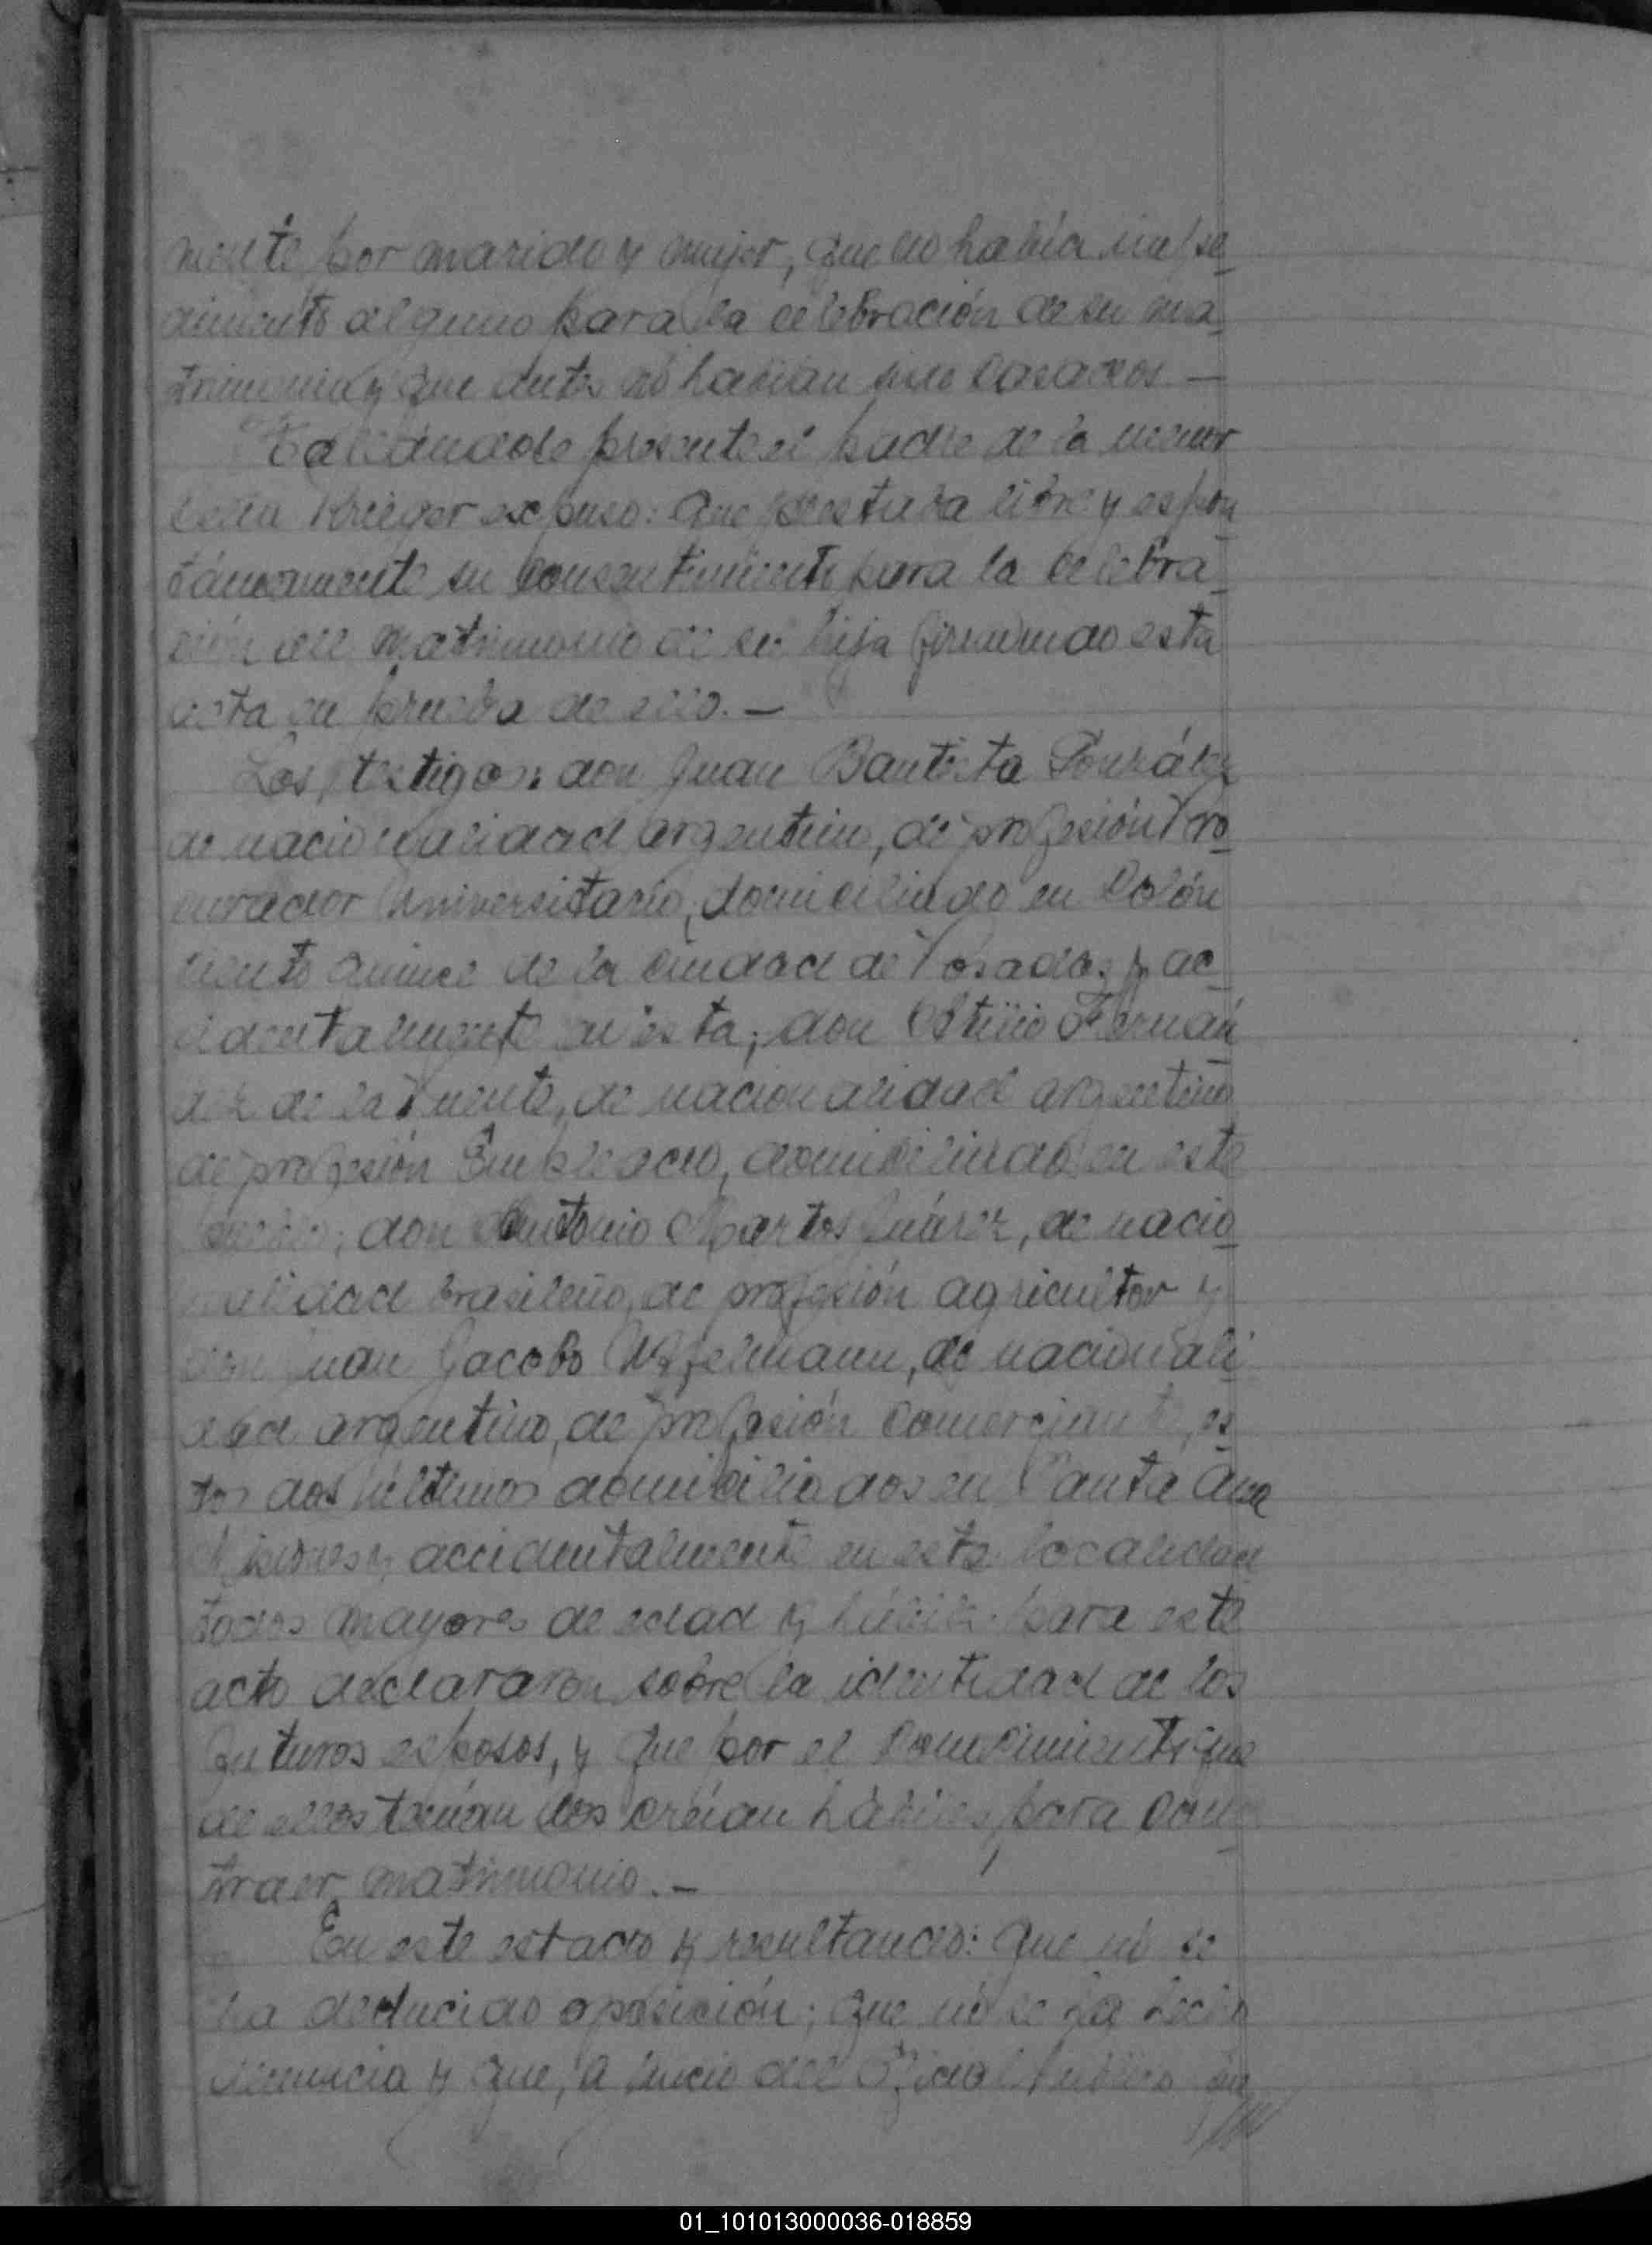 mente por marido y mujer, que no había impe-
dimento alguno para la celebración de su ma-
trimonio y que antes no habían sido casados.—
Hallándose presente el padre de la menor
Krieger expuso: Que prestaba libre y espon-
táneamente su consentimiento para la celebra-
ción del matrimonio de su hija firmando esta
acta en prueba de ello.—
Los testigos: don Juan Bautista González
de nacionalidad argentino, de profesión Pro-
curador Universitario, domiciliado en Colón
ciento quince de la ciudad de Posadas y ac-
cidentalmente en ésta; don Otilio Fernán-
dez de la Puente, de nacionalidad argentino
de profesión Empleado, domiciliado en este
pueblo; don Antonio Martos Juárez, de nacio-
nalidad brasileño, de profesión agricultor y
don Juan Jacobo, de nacionali-
dad argentino, de profesión comerciante, es-
tos dos últimos domiciliados en Santa Ana
Misiones y accidentalmente en esta localidad
todos mayores de edad y hábiles para este
acto declararon sobre la identidad de los
futuros esposos, y que por el conocimiento que
de ellos tenían los creían hábiles para con-
traer matrimonio.—
En este estado y resultando: Que no se
ha deducido oposición; que no se ha hecho
denuncia y que, a juicio del Oficial Público que